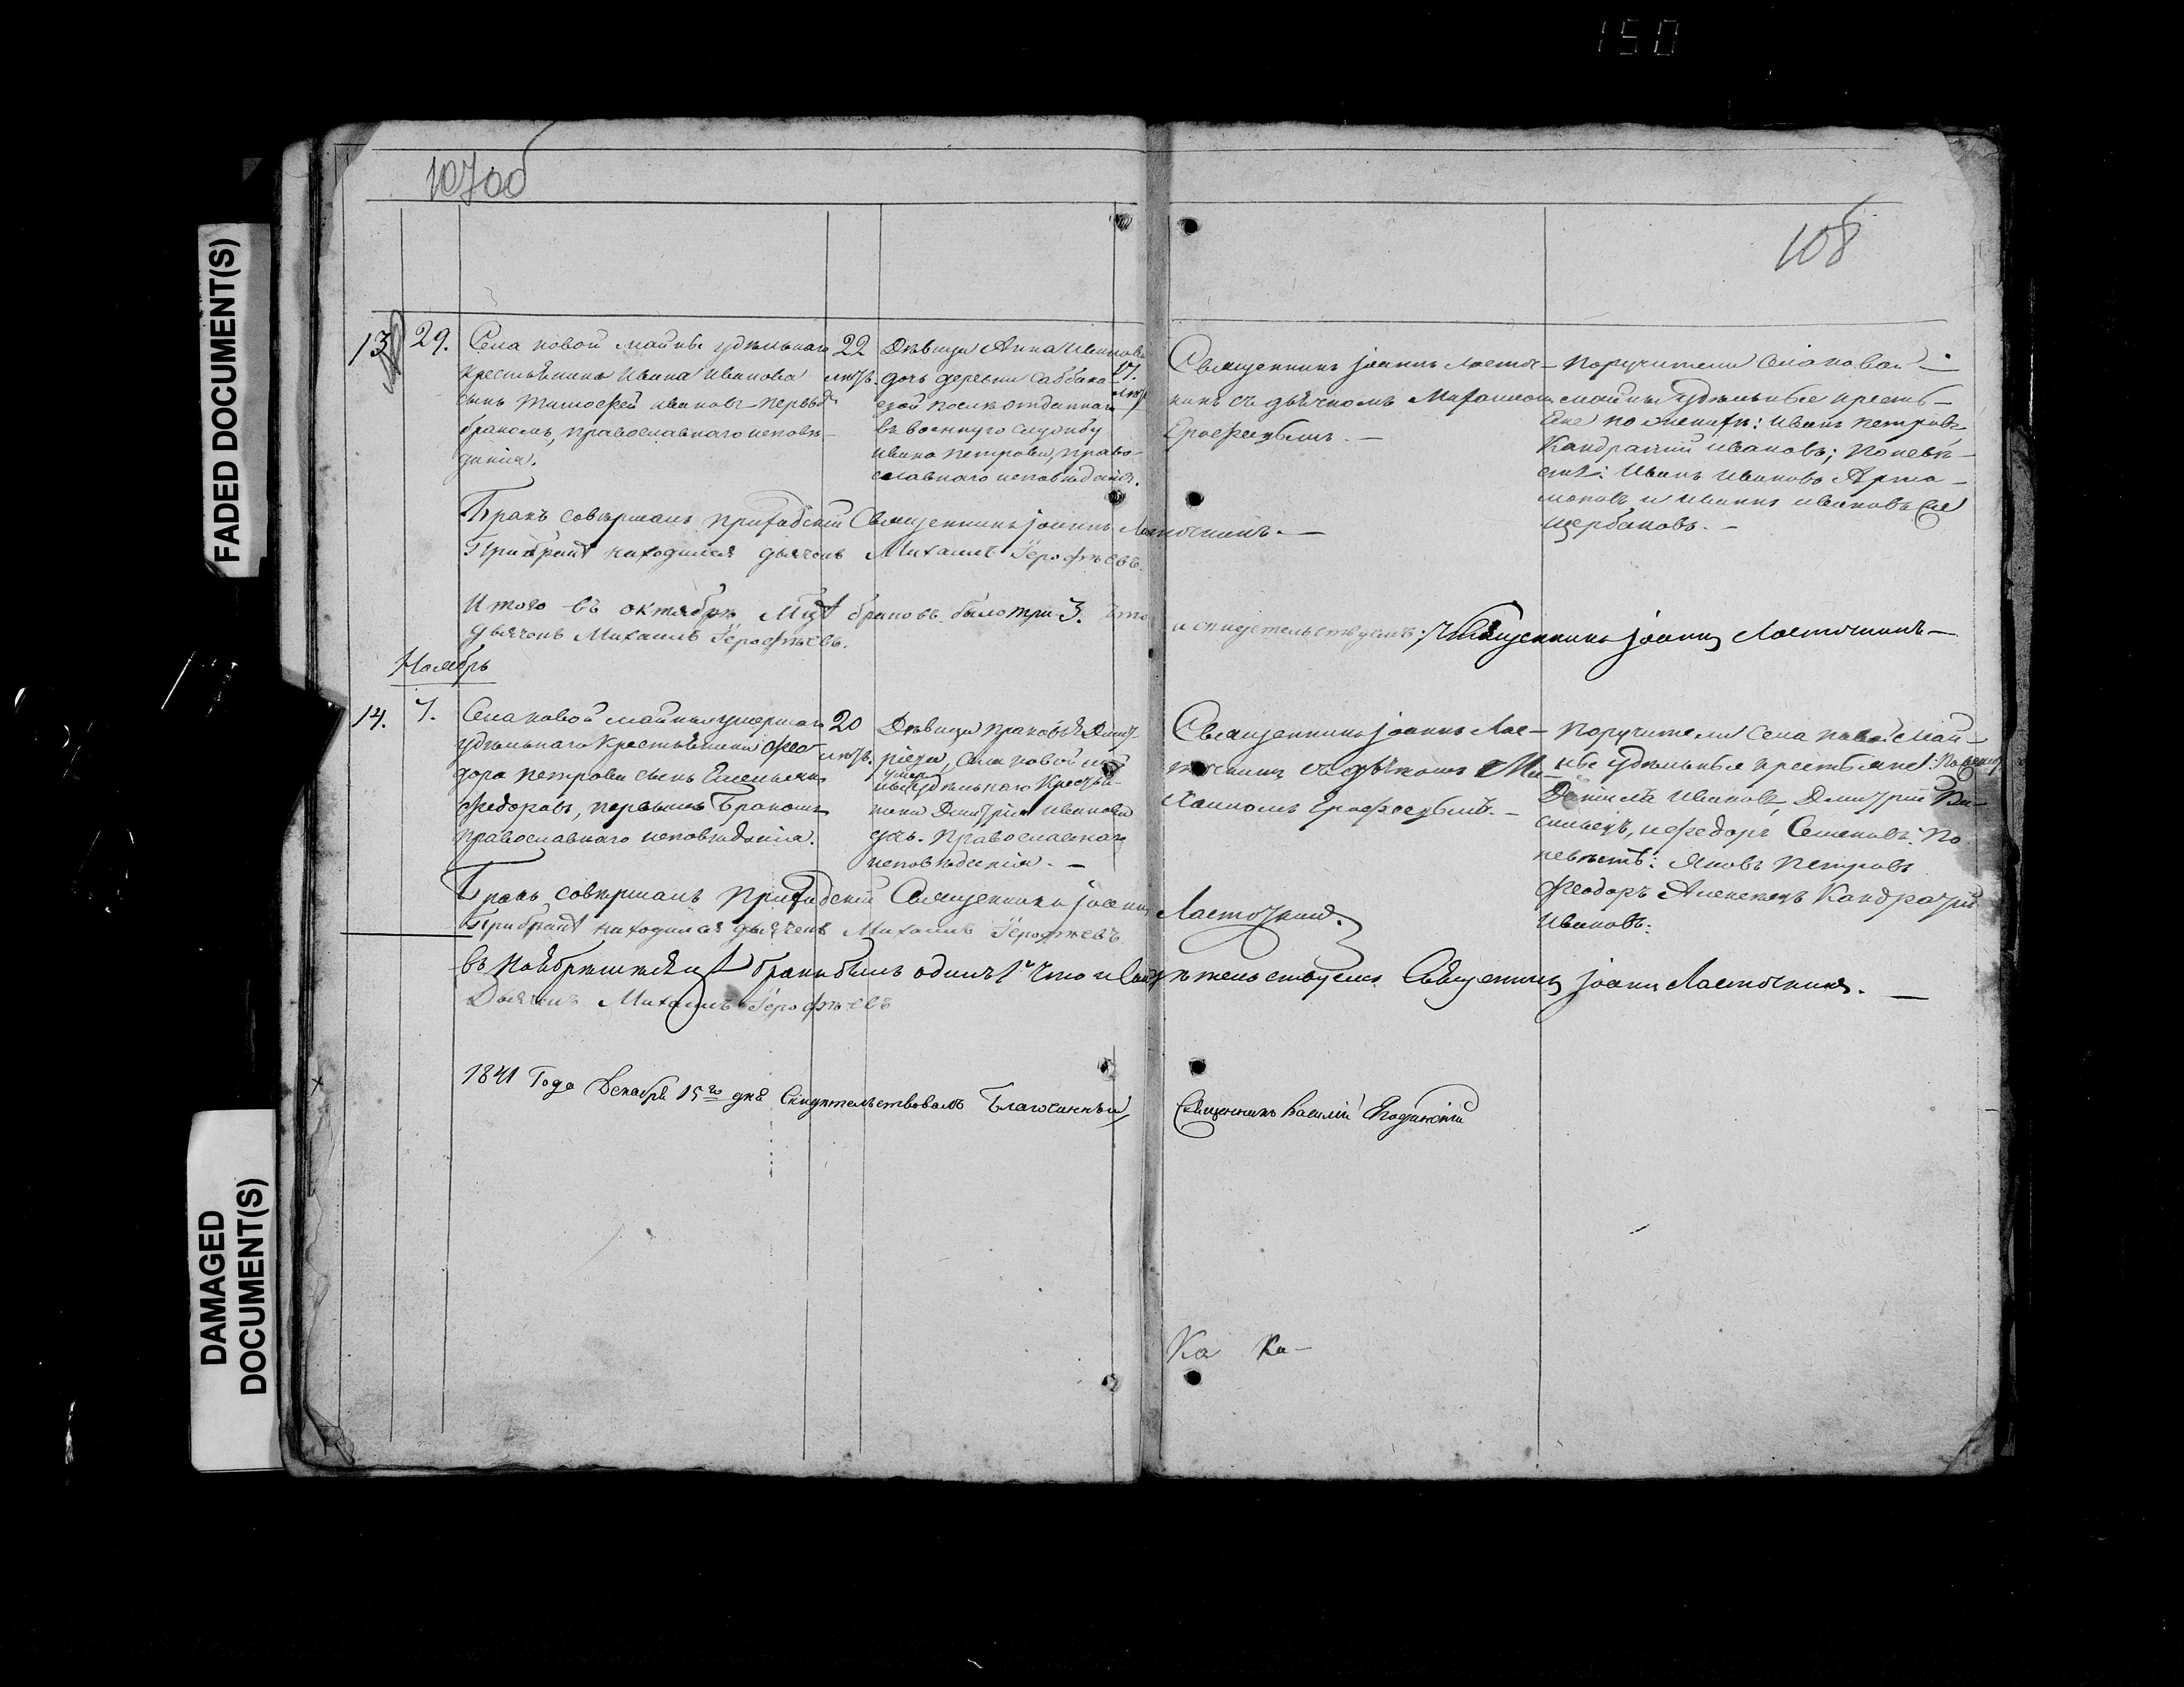 150
107об
108
FADED DOCUMENT(S)
DAMAGED
DOCUMENT(S)
13
29.
Села новой майны удѣльнаго
крестьянина Ивана Иванова
сынъ Тимофей Ивановъ первымъ
бракомъ, православнаго исповѣ-
данія.
22
лѣтъ.
Дѣвица Анна Иванова
дочь деревни
отданнаго
въ военную службу
Ивана Петрова, право-
славнаго исповѣданія.
17.
лѣтъ
Священникъ Іоаннъ Ласточ-
кинъ съ дьячкомъ Михаиломъ
Ерофеевымъ. —
поручители села новой
майны удѣльные кресть-
яне по женихѣ: Иванъ Петровъ
Кандратій Ивановъ; по невѣ-
стѣ: Иванъ Ивановъ Арта-
моновъ и Иванъ Ивановъ
Щербаковъ. —
Бракъ совершалъ приходскій Священникъ Іоаннъ Ласточкинъ. —
При бракѣ находился дьячокъ Михаилъ Іерофѣевъ.
Итого въ октябрѣ М-цѣ браковъ было три 3. что и свидетельствуемъ: Священникъ Іоаннъ Ласточкинъ —
дьячокъ Михаилъ Іерофѣевъ.
Ноябрь
14.
7.
Села новой майны умершаго
удѣльнаго крестьянина Фео-
дора Петрова сынъ Емельянъ
Федоровъ, первымъ бракомъ
православнаго исповѣданія.
20
лѣтъ.
Дѣвица Прасковья Дмит-
ріева, села новой май-
умер.
ны удѣльнаго крестья-
нина Дмитрія Иванова
дочь. православнаго
исповѣданія. —
Священникъ Іоаннъ Лас-
точкинъ съ дьячкомъ Ми-
хаиломъ Ерофеевымъ. —
поручители села новой май-
ны удѣльные крестьяне: По жених
Данила Ивановъ, Дмитрій Ва-
сильевъ, и Федоръ Семеновъ. По
невѣстѣ: Яковъ Петровъ
Феодоръ Алексѣевъ Кандратій
Ивановъ.
Бракъ совершалъ приходскій Священникъ Іоаннъ Ласточкинъ.
При бракѣ находился дьячокъ Михаилъ Іерофѣевъ.
въ ноябрѣ мѣсяцѣ бракъ былъ одинъ 1 что и свидѣтельствуемъ Священникъ Іоаннъ Ласточкинъ. —
Дьячокъ Михаилъ Іерофѣевъ
1841 Года Декабря 15го дня Свидѣтельствовалъ Благочинный Священникъ Василій Ягодинскій
Ка Ка-